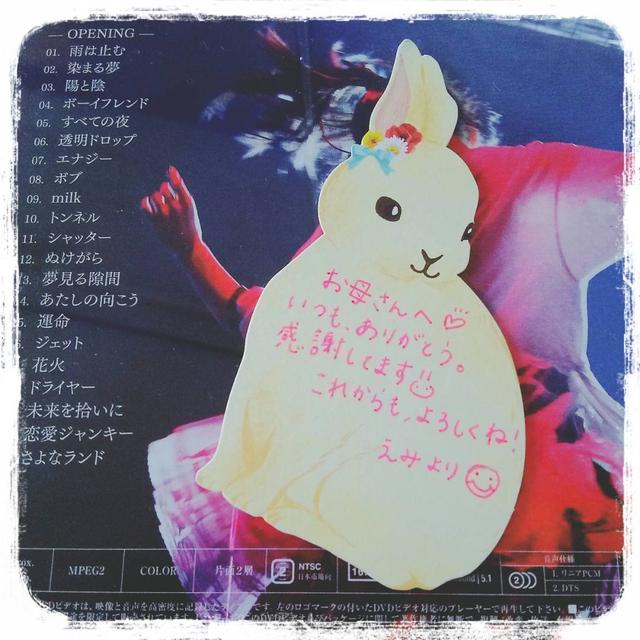 — OPENING —
01. 雨は止む
02. 染まる夢
03. 陽と陰
04. ボーイフレンド
05. すべての夜
06. 透明ドロップ
07. エナジー
08. ボブ
09. milk
10. トンネル
11. シャッター
12. ぬけがら
3. 夢見る隙間
4. あたしの向こう
5. 運命
ジェット
花火
ドライヤー
未来を拾いに
恋愛ジャンキー
さよなランド
お母さんへ♡
いつも、ありがとう。
感謝してます☺
これからも、よろしくね!
えみより☺
ox. MPEG2 COLOR 片面2層 2 NTSC 日本市場向 16: 5.1 2))) 音声仕様
1. リニアPCM
2. DTS
DVDビデオは、映像と音声を高密度に記録した です 左のロゴマークの付いたDVDビデオ対応のプレーヤーで再生して下さい。■このビデ